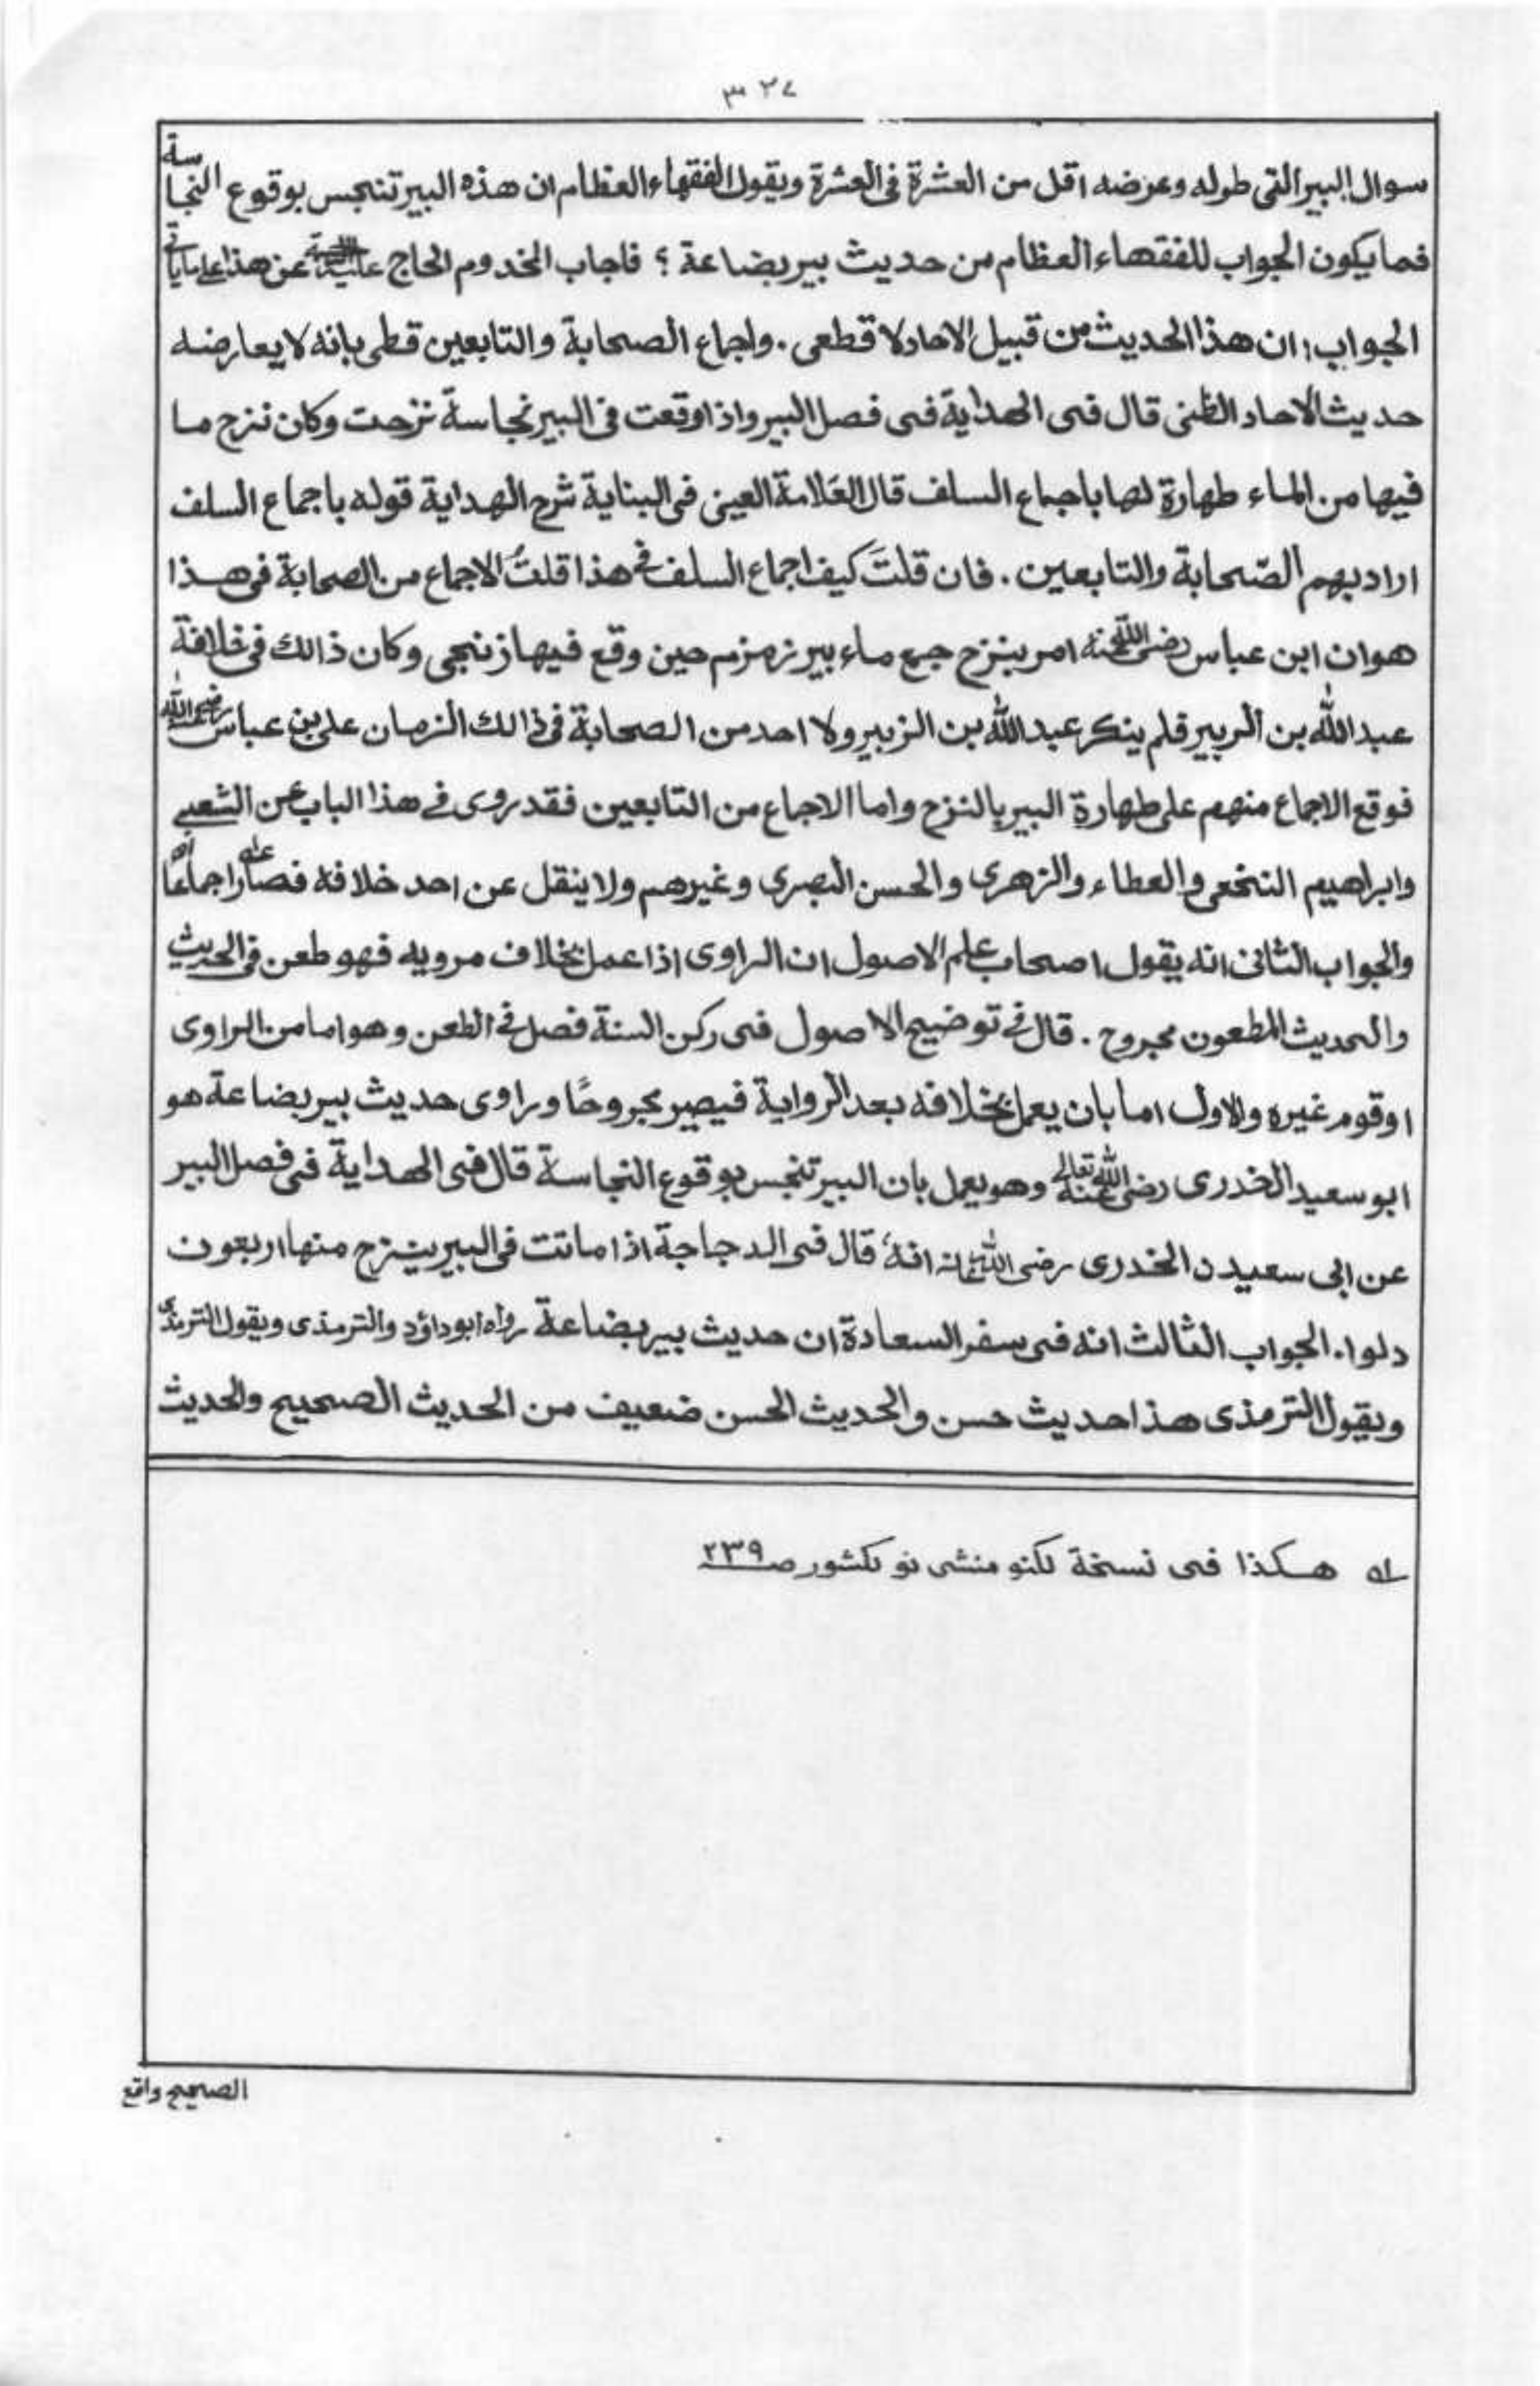 ٣٢٧
سوال البير التى طوله وعرضه اقل من العشرة فى العشرة ويقول الفقهاء العظام ان هذه البير تنجس بوقوع النجاسة
فما يكون الجواب للفقهاء العظام من حديث بير بضاعة ؟ فاجاب المخدوم الحاج عن هذا على ما ياتى
الجواب: ان هذا الحديث من قبيل الاحاد لا قطعى . واجماع الصحابة والتابعين قطى بانه لا يعارضه
حديث الاحاد الظنى قال فى الهداية فى فصل البير واذا وقعت فى البير نجاسة نزحت وكان نزح ما
فيها من الماء طهارة لها باجماع السلف قال العلامة العينى فى البناية شرح الهداية قوله باجماع السلف
اراد بهم الصّحابة والتابعين . فان قلتَ كيف اجماع السلف فى هذا قلتُ الاجماع من الصحابة فى هذا
هو ان ابن عباس رضى الله عنه امر بنزح جمع ماء بير زمزم حين وقع فيها زنجى وكان ذالك فى خلافة
عبد الله بن الزبير فلم ينكر عبد الله بن الزبير ولا احد من الصحابة فى ذالك الزمان على بن عباس رضى الله
فوقع الاجماع منهم على طهارة البير بالنزح واما الاجماع من التابعين فقد روى فى هذا الباب عن الشعبى
وابراهيم النخعى والعطاء والزهرى والحسن البصرى وغيرهم ولا ينقل عن احد خلافه فصار اجماعًا
والجواب الثانى انه يقول اصحاب علم الاصول ان الراوى اذا عمل بخلاف مرويه فهو طعن فى الحديث
والحديث المطعون مجروح . قال فى توضيح الاصول فى ركن السنة فصل فى الطعن وهو اما من الراوى
او قوم غيره والاول اما بان يعمل بخلافه بعد الرواية فيصير مجروحًا وراوى حديث بير بضاعة هو
ابو سعيد الخدرى رضى الله تعالى عنه وهو يعمل بان البير تنجس بوقوع النجاسة قال فى الهداية فى فصل البير
عن ابى سعيد ن الخدرى رضى الله عنه انه قال فى الدجاجة اذا ماتت فى البير ينزح منها اربعون
دلوا. الجواب الثالث انه فى سفر السعادة ان حديث بير بضاعة رواه ابو داؤد والترمذى ويقول الترمذى
ويقول الترمذى هذا حديث حسن والحديث الحسن ضعيف من الحديث الصحيح والحديث
له هكذا فى نسخة لكنو منشى نو لكشور صـ ٢٣٩
الصحيح واقع